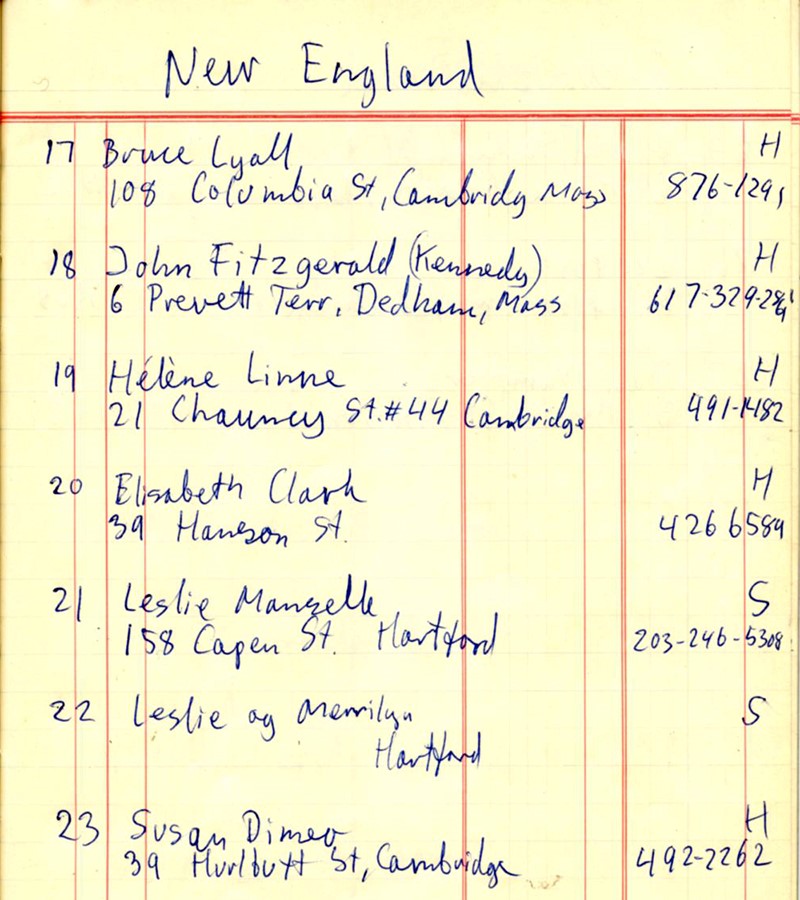 New England
17 Bruce Lyall H
108 Columbia St, Cambridg Mass 876-1291
18 John Fitzgerald (Kennedy) H
6 Prevett Terr, Dedham, Mass 617-329-
19 Hélène Linne H
21 Chauncy St. #44 Cambridge 491-1482
20 Elisabeth Clark H
39 St. 426 6589
21 Leslie S
158 Capen St. Hartford 203-246-5308
22 Leslie og Merrilyn S
Hartford
23 Susan Dimeo H
39 Hurlbutt St, Cambridge 492-2262